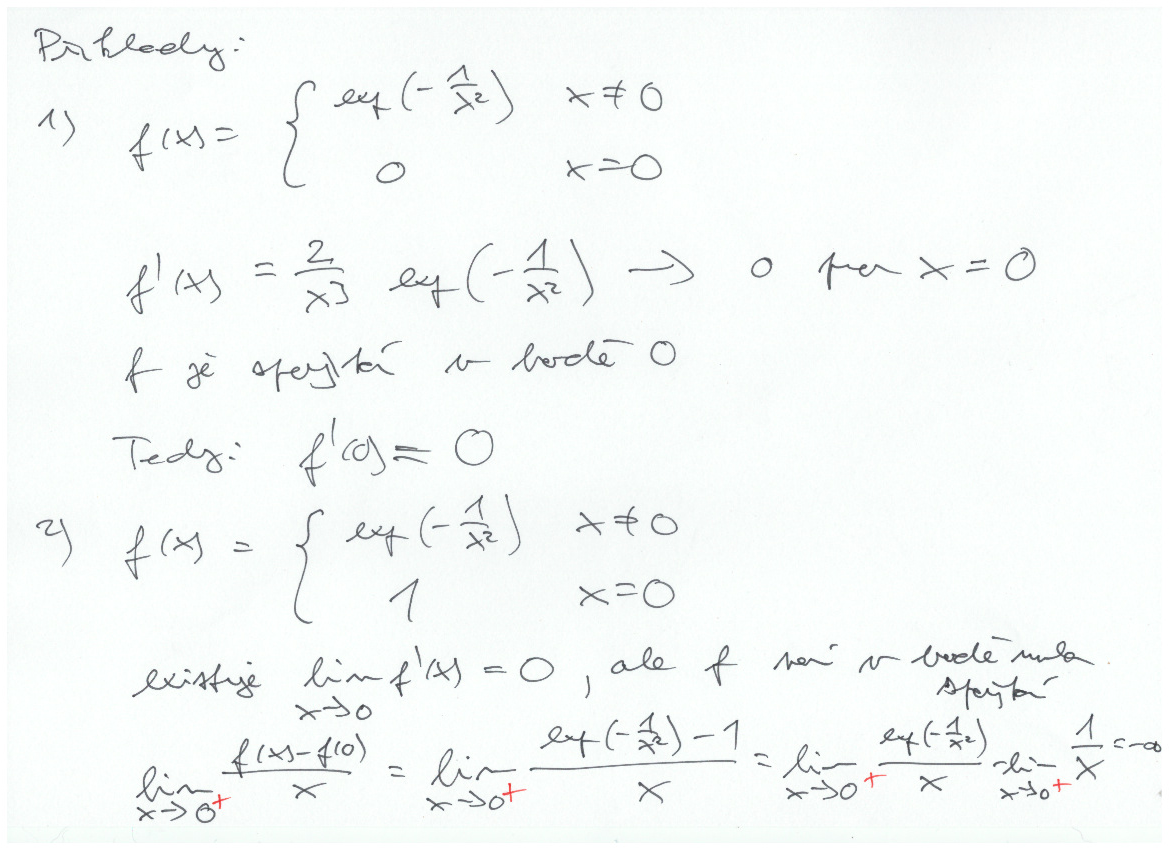 Příklady:
1) f(x) = { exp(-1/x²) x ≠ 0
0 x = 0
f'(x) = 2/x³ exp(-1/x²) → 0 pro x = 0
f je spojitá v bodě 0
Tedy: f'(0) = 0
2) f(x) = { exp(-1/x²) x ≠ 0
1 x = 0
existuje lim x→0 f'(x) = 0, ale f není v bodě nula
spojitá
lim x→0+ (f(x)-f(0))/x = lim x→0+ (exp(-1/x²)-1)/x = lim x→0+ exp(-1/x²)/x - lim x→0+ 1/x = -∞